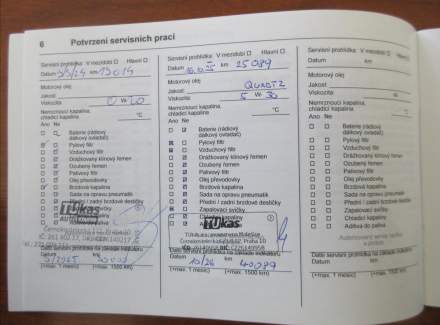 6 Potvrzení servisních prací
Servisní prohlídka: V mezidobí Hlavní
Datum 3/3/24 km 13014
Motorový olej
Jakost
Viskozita 0 W 20
Nemrznoucí kapalina,
chladicí kapalina °C
Ano Ne
Baterie (rádiový
dálkový ovladač)
Pylový filtr
Vzduchový filtr
Drážkovaný klínový řemen
Ozubený řemen
Palivový filtr
Olej převodovky
Brzdová kapalina
Sada na opravu pneumatik
Přední / zadní brzdové destičky
ITOkas
AUTO
Další servisní prohlídka na základě indikátoru
Datum km
3/2025
(+max. 1 měsíc) (+max. 1500 km)
Servisní prohlídka: V mezidobí Hlavní
Datum km 25089
Motorový olej
Jakost QUARTZ
Viskozita 5 W 30
Nemrznoucí kapalina,
chladicí kapalina °C
Ano Ne
Baterie (rádiový
dálkový ovladač)
Pylový filtr
Vzduchový filtr
Drážkovaný klínový řemen
Ozubený řemen
Palivový filtr
Olej převodovky
Brzdová kapalina
Sada na opravu pneumatik
Přední / zadní brzdové destičky
Zapalovací svíčky
ITOkas
Další servisní prohlídka na základě indikátoru
Datum km
10/26 40089
(+max. 1 měsíc) (+max. 1500 km)
Servisní prohlídka: V mezidobí Hlavní
Datum km
Motorový olej
Jakost
Viskozita W
Nemrznoucí kapalina,
chladicí kapalina °C
Ano Ne
Baterie (rádiový
dálkový ovladač)
Pylový filtr
Vzduchový filtr
Drážkovaný klínový řemen
Ozubený řemen
Palivový filtr
Olej převodovky
Brzdová kapalina
Sada na opravu pneumatik
Přední / zadní brzdové destičky
Zapalovací svíčky
Chladicí kapalina
Aditiva do paliva
Další servisní prohlídka na základě indikátoru
Datum km
(+max. 1 měsíc) (+max. 1500 km)